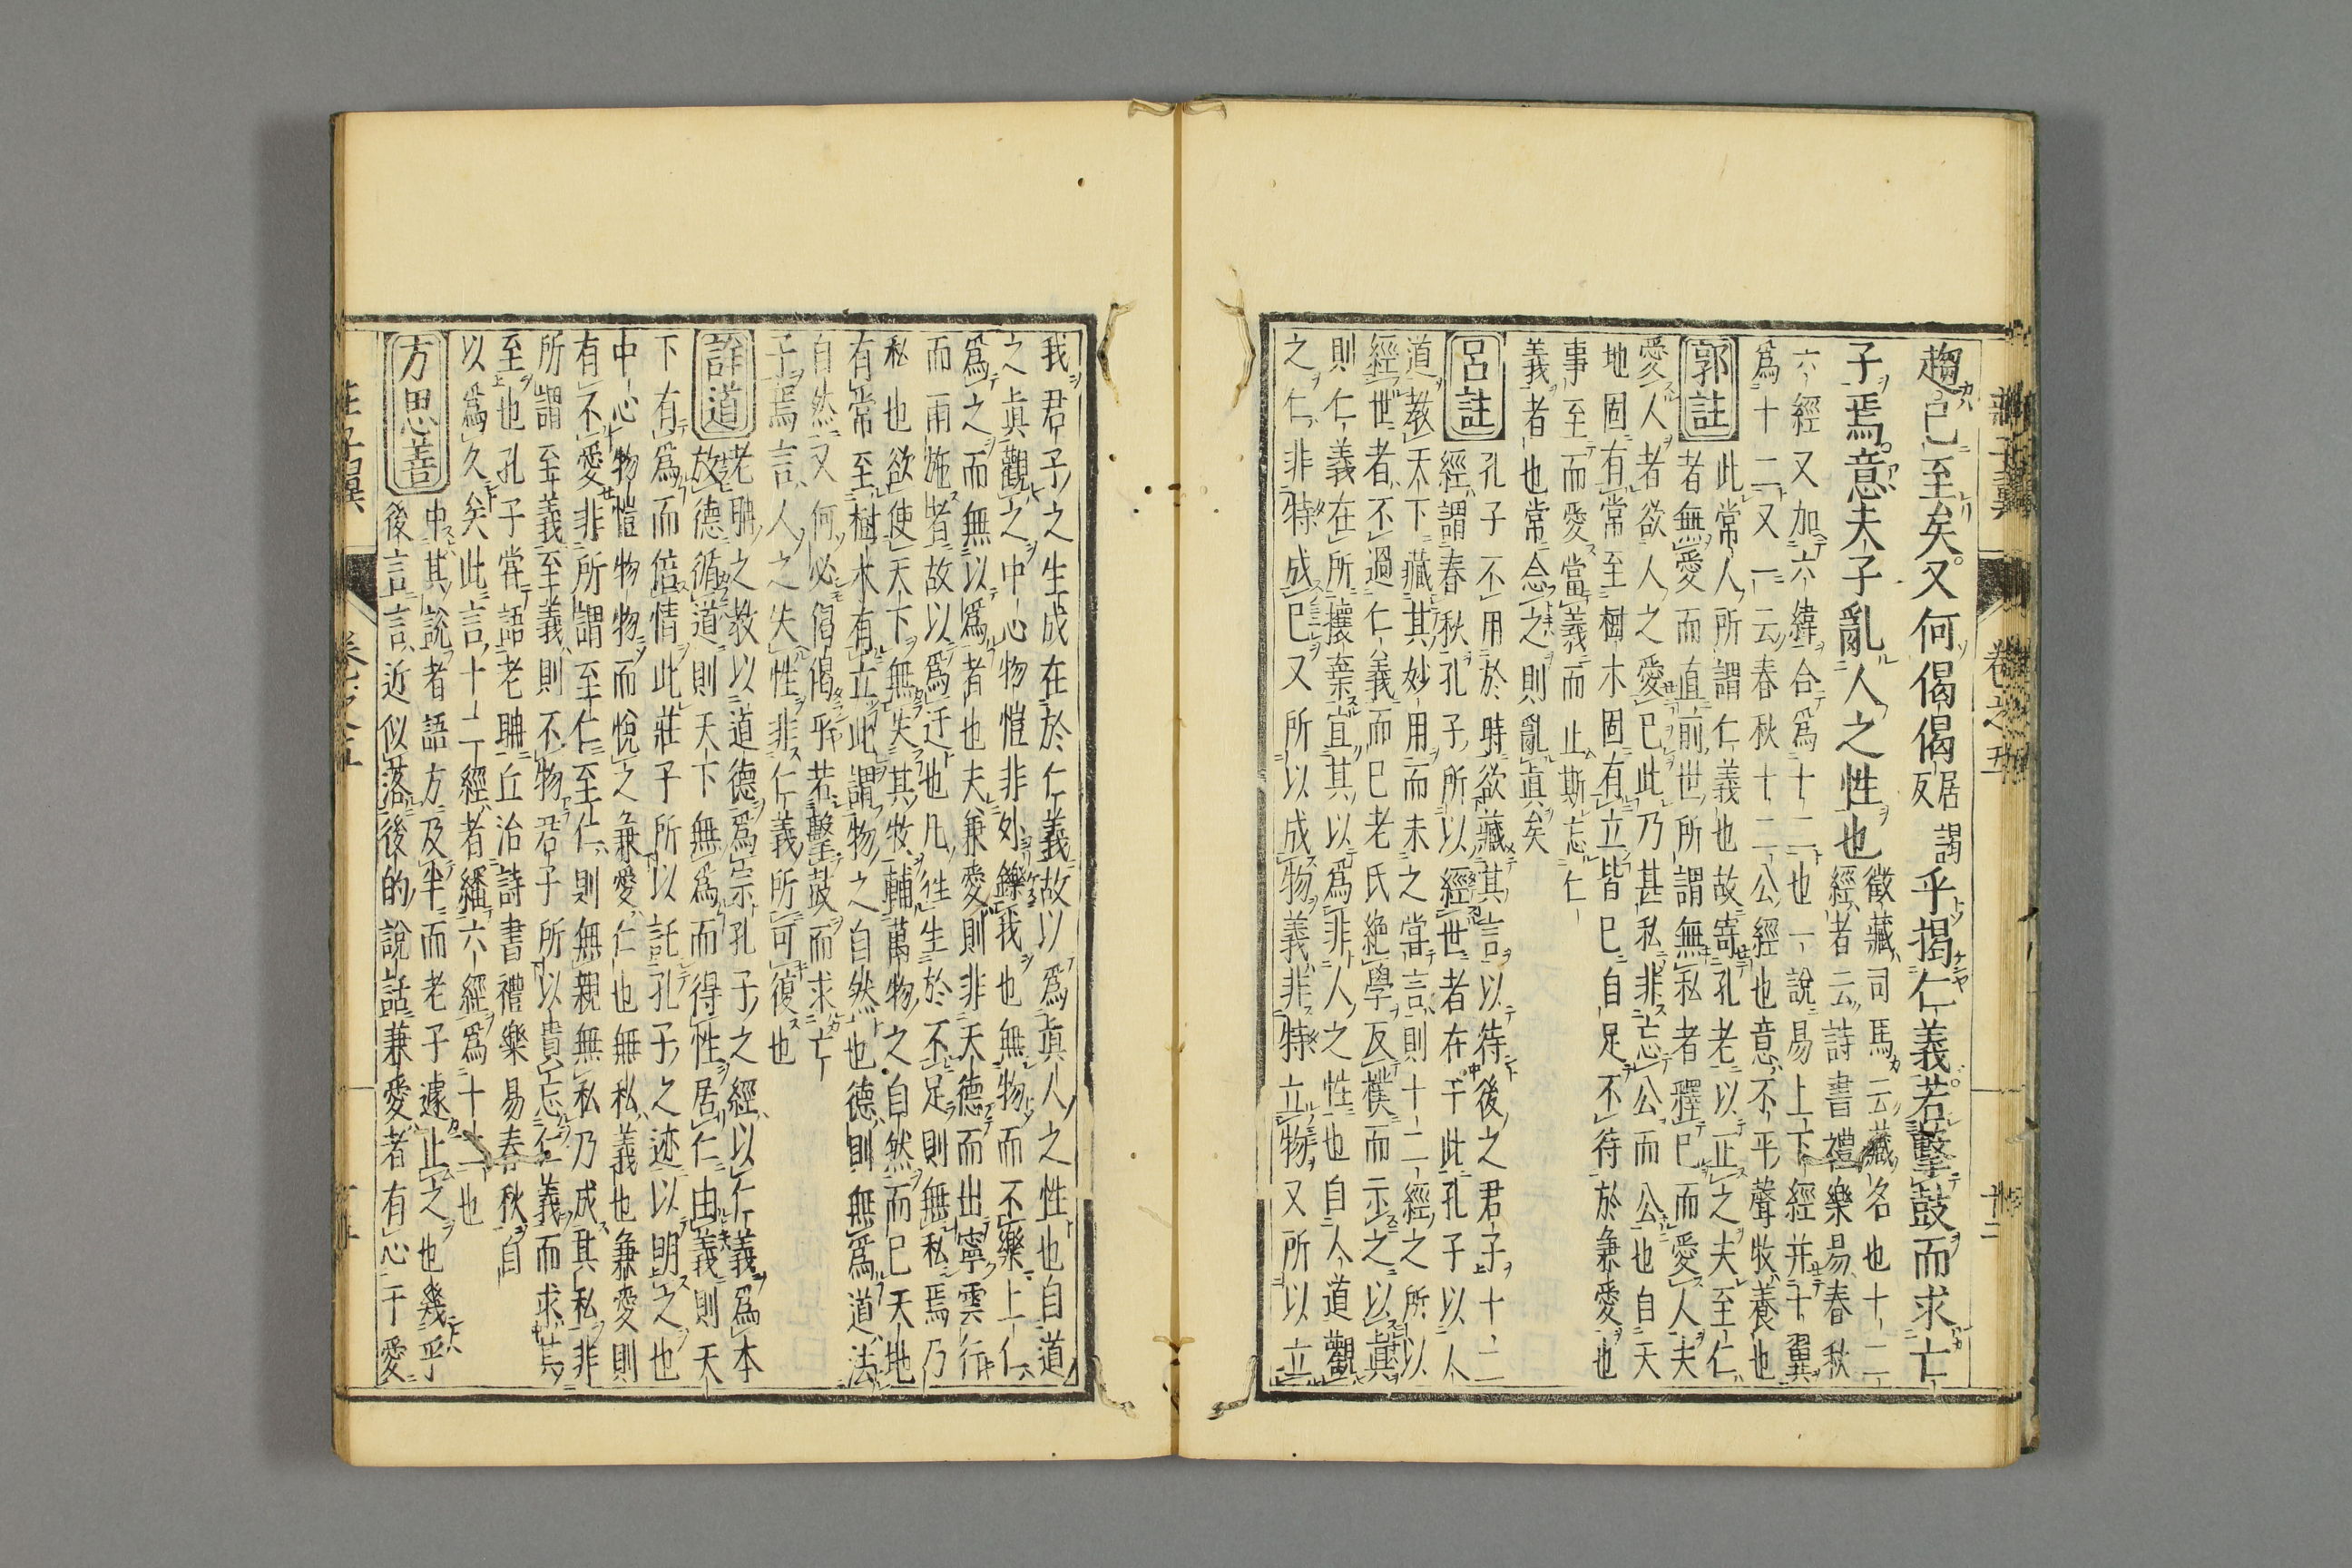 趨已至矣又何偈偈居謁反乎揭仁義若擊鼓而求亡
子焉意夫子亂人之性也徵藏司馬云藏名也十二
經者云詩書禮樂易春秋
六經又加六緯合爲十二也一說易上下經幷十翼
爲十二又一云春秋十二公經也意不平聲牧養也
郭註此常人所謂仁義也故寄孔老以正之夫至仁
者無愛而直前世所謂無私者釋已而愛人夫
愛人者欲人之愛已此乃甚私非忘公而公也自天
地固有常至樹木固有立皆已自足不待於兼愛也
事至而愛當義而止斯忘仁
義者也常念之則亂眞矣
呂註孔子不用於時欲藏其言以待後之君子十二
經謂春秋孔子所以經世者在于此孔子以人
道教天下藏其妙用而未之嘗言則十二經之所以
經世者不過仁義而已老氏絶學反樸而示之以眞
則仁義在所攘棄宜其以爲非人之性也自人道觀
之仁非特成已又所以成物義非特立物又所以立
我君子之生成在於仁義故以爲眞人之性也自道
之眞觀之中心物愷非外鑠我也無物而不樂上仁
爲之而無以爲者也夫兼愛則非天德而出寧雲行
而雨施者故以爲迂也凡往生於不足則無私焉乃
私也欲使天下無失其牧輔萬物之自然而已天地
有常至樹木有立此謂物之自然也德則無爲道法
自然又何必偈偈乎若擊鼓而求亡
子焉言人之失性非仁義所可復也
詳道老聃之教以道德爲宗孔子之經以仁義爲本
放德循道則天下無爲而得性居仁由義則天
下有爲而倍情此莊子所以託孔子之迹以明之也
中心物愷物物而悅之兼愛仁也無私義也兼愛則
有不愛非所謂至仁至仁則無親無私乃成其私非
所謂至義至義則不物君子所以貴忘仁義而求其
至也孔子嘗語老聃丘治詩書禮樂易春秋自
以爲久矣此言十二經者繙六經爲十二也
方思善中其說者語方及半而老子遽止之也幾乎
後言言近似落後的說話兼愛者有心于愛
莊子翼 卷之五